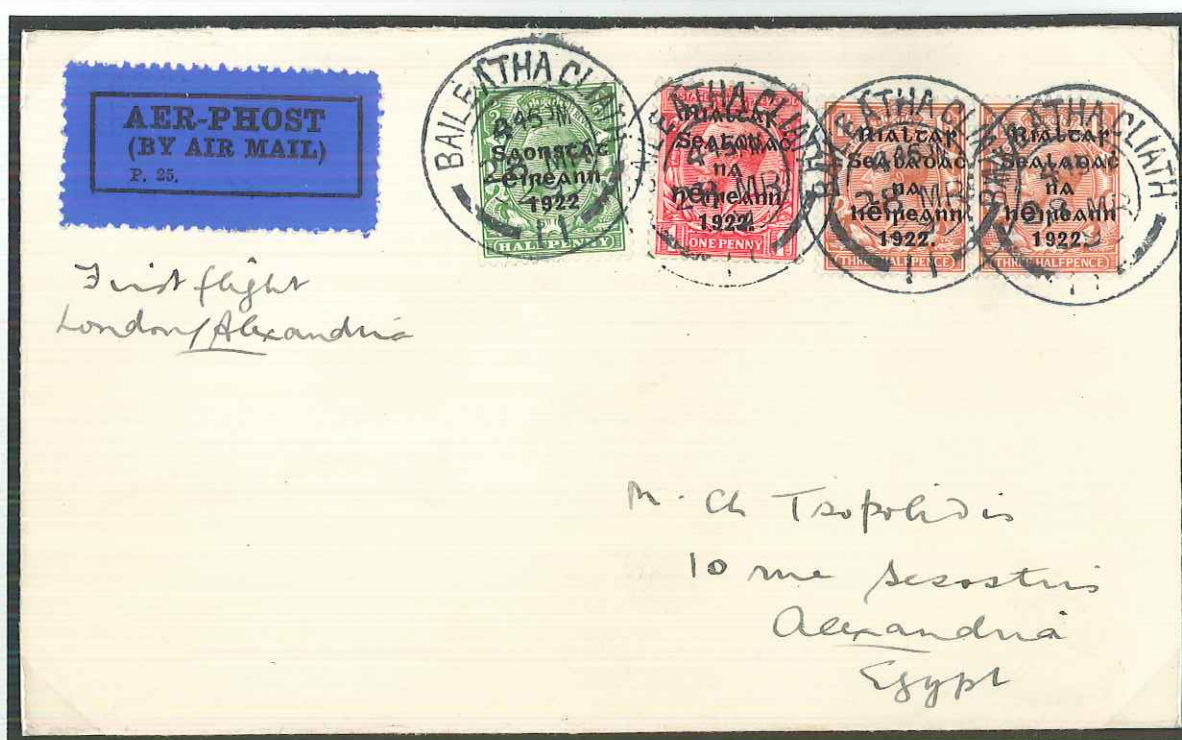 AER-PHOST
(BY AIR MAIL)
P. 25.
BAILE ATHA CLIATH
4 45 PM
28 MR
11
Saorstát
Éireann
1922
HALFPENNY
ATHA CLIATH
4 45 PM
28 MR
Rialtas
Sealadac
na
hÉireann
1922.
ONE PENNY
ATHA CLIATH
28 MR
11
Rialtas
Sealadac
na
hÉireann
1922.
THREE HALFPENCE
ATHA CLIATH
28 MR
11
Rialtas
Sealadac
na
hÉireann
1922.
THREE HALFPENCE
First flight
London/Alexandria
M. Ch Tsopolidis
10 rue Sesostris
Alexandria
Egypt